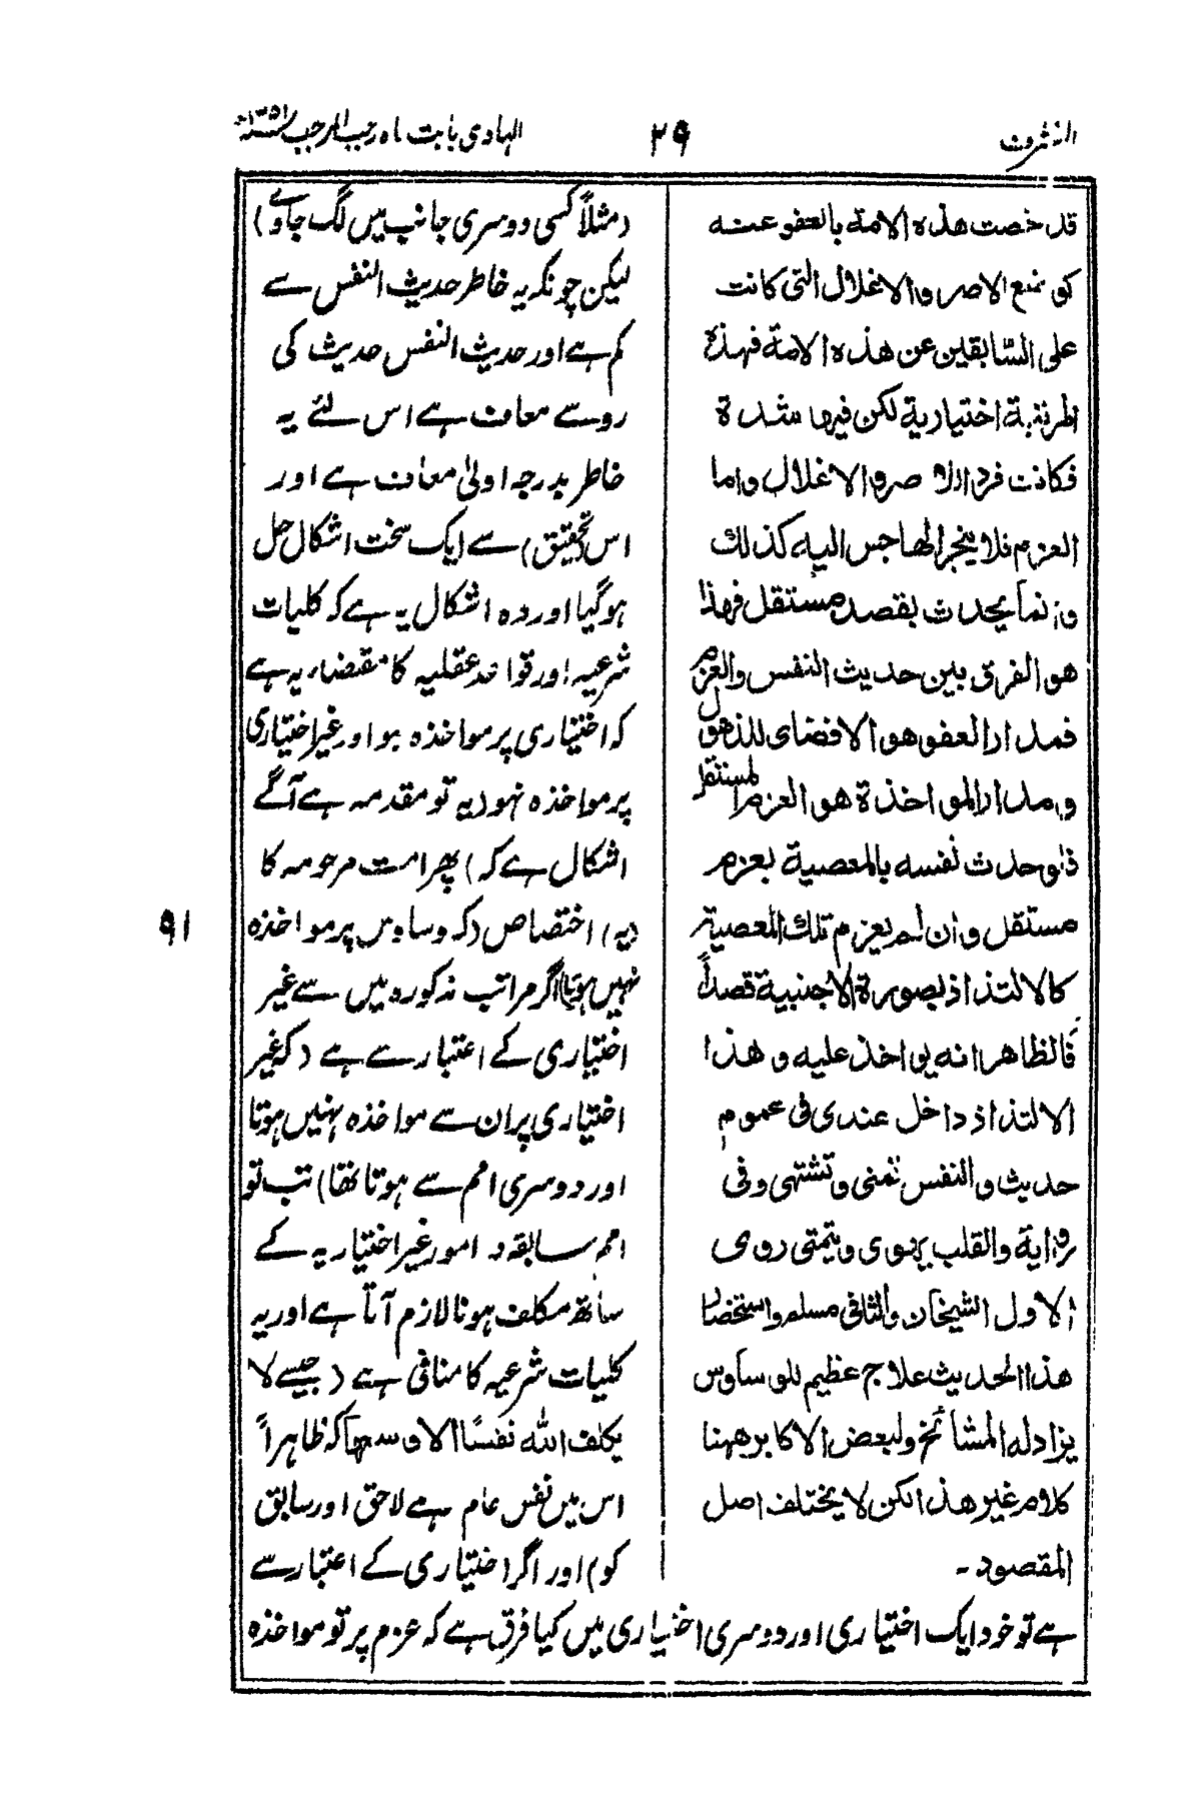 التشرف
۲۹
الہادی بابت ماہ رجب المرجب ۱۳۵۱ھ
قد خصت هذه الامة بالعفو عنه
كوضع الاصر والاغلال التی کانت
علی السّابقین عن هذه الامة فهذه
المرتبة اختیاریة لکن فیها شدة
فکانت فردا للاصر والاغلال واما
العزم فلا ینجر الهاجس الیه کذلك
وانما یحدث بقصد مستقل فهذا
هو الفرق بین حدیث النفس والعزم
فمدار العفو هو الافضای للذهول
ومدار المواخذة هو العزم المستقل
فلو حدث نفسه بالمعصیة بعزم
مستقل وان لم یعزم تلك المعصیة
کالالتذاذ بصورة الاجنبیة قصداً
فالظاهر انه یواخذ علیه وهذا
الالتذاذ داخل عندی فی عموم
حدیث والنفس تمنی وتشتهی وفی
روایة والقلب یهوی ویتمنی روی
الاول الشیخان والثانی مسلم واستحضار
هذا الحدیث علاج عظیم للوساوس
یزاد له المشائخ ولبعض الاکابر ههنا
کلام غیر هذا لکن لا یختلف اصل
المقصود۔
(مثلاً کسی دوسری جانب میں لگ جاوے)
لیکن چونکہ یہ خاطر حدیث النفس سے
کم ہے اور حدیث النفس حدیث کی
رو سے معاف ہے اس لئے یہ
خاطر بدرجہ اولیٰ معاف ہے اور
اس (تحقیق) سے ایک سخت اشکال حل
ہوگیا اور وہ اشکال یہ ہے کہ کلیات
شرعیہ اور قواعد عقلیہ کا مقتضا یہ ہے
کہ اختیاری پر مواخذہ ہو اور غیر اختیاری
پر مواخذہ نہو (یہ تو مقدمہ ہے آگے
اشکال ہے کہ) پھر امت مرحومہ کا
(یہ) اختصاص (کہ وساوس پر مواخذہ
نہیں ہوتا) اگر مراتب مذکورہ میں سے غیر
اختیاری کے اعتبار سے ہے (کہ غیر
اختیاری پر ان سے مواخذہ نہیں ہوتا
اور دوسری امم سے ہوتا تھا) تب تو
امم سابقہ کا امور غیر اختیاریہ کے
ساتھ مکلف ہونا لازم آتا ہے اور یہ
کلیات شرعیہ کا منافی ہے (جیسے لا
یکلف اللہ نفسًا الا وسعها کہ ظاہراً
اس میں نفس عام ہے لاحق اور سابق
کو) اور اگر اختیاری کے اعتبار سے
۹۱
ہے تو خود ایک اختیاری اور دوسری اختیاری میں کیا فرق ہے کہ عزم پر تو مواخذہ